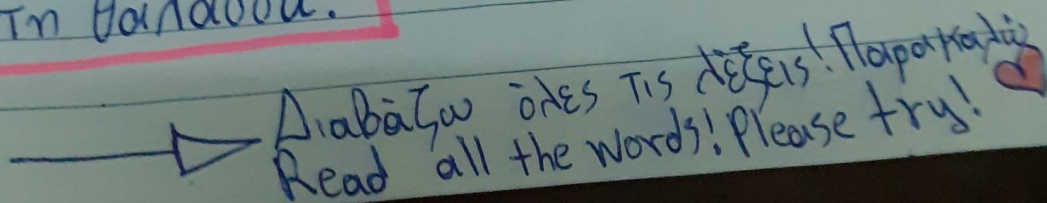 τη θάλασσα.
Διαβάζω όλες τις λέξεις! Παρακαλώ
Read all the words! Please try!